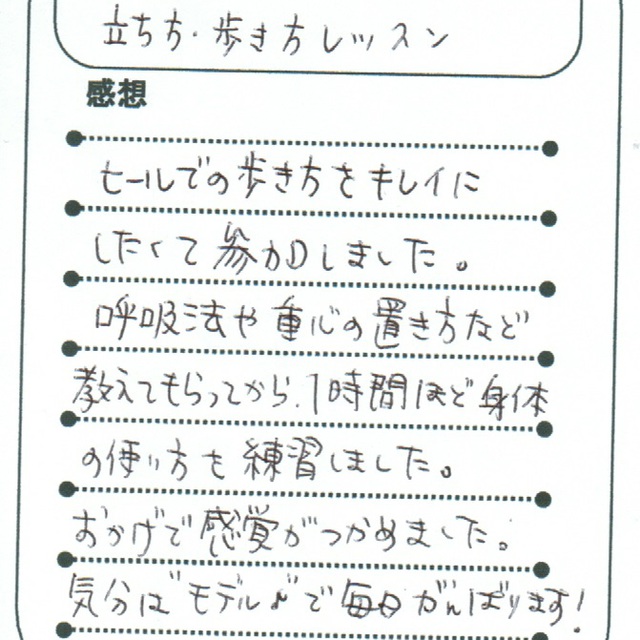 立ち方・歩き方レッスン
感想
ヒールでの歩き方をキレイに
したくて参加しました。
呼吸法や重心の置き方など
教えてもらってから、1時間ほど身体
の使い方を練習しました。
おかげで感覚がつかめました。
気分は"モデル♪"で毎日がんばります!